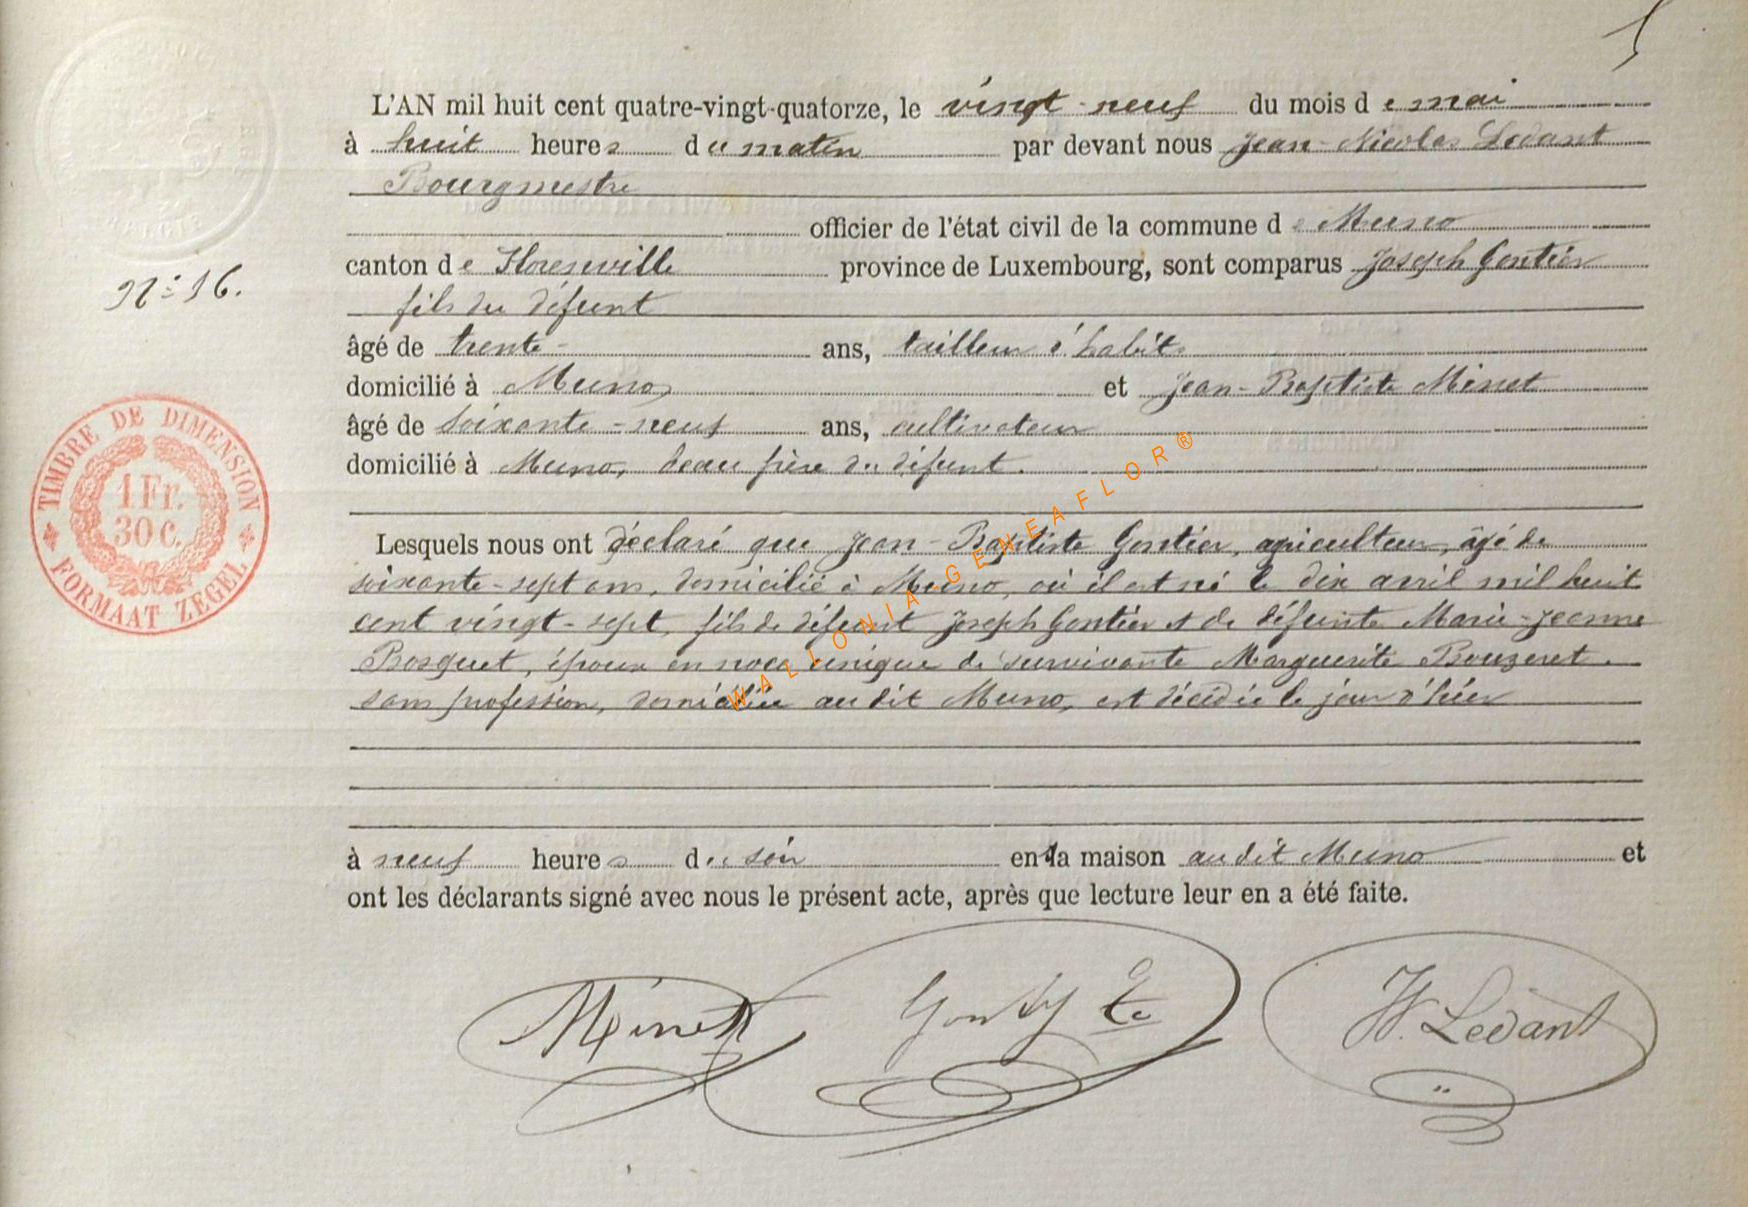 L'AN mil huit cent quatre-vingt-quatorze, le vingt-neuf du mois de mai
à huit heures du matin par devant nous Jean-Nicolas Ledant
Bourgmestre
officier de l'état civil de la commune de Muno
canton de Florenville province de Luxembourg, sont comparus Joseph Gontier
N° 16.
fils du défunt
âgé de trente ans, tailleur d'habits
domicilié à Muno, et Jean-Baptiste Minet
âgé de soixante-neuf ans, cultivateur
domicilié à Muno, beau frère du défunt.
TIMBRE DE DIMENSION
1 Fr.
30 c.
FORMAAT ZEGEL
Lesquels nous ont déclaré que Jean-Baptiste Gontier, apiculteur, âgé de
soixante-sept ans, domicilié à Muno, où il est né le dix avril mil huit
cent vingt-sept, fils de défunt Joseph Gontier et de défunte Marie-Jeanne
Bosquet, époux en noce unique de survivante Marguerite Bouzeret,
sans profession, domiciliée au dit Muno, est décédé le jour d'hier
WALLONIA-GENEAFLOR®
à neuf heures du soir en la maison au dit Muno et
ont les déclarants signé avec nous le présent acte, après que lecture leur en a été faite.
Minet Ledant